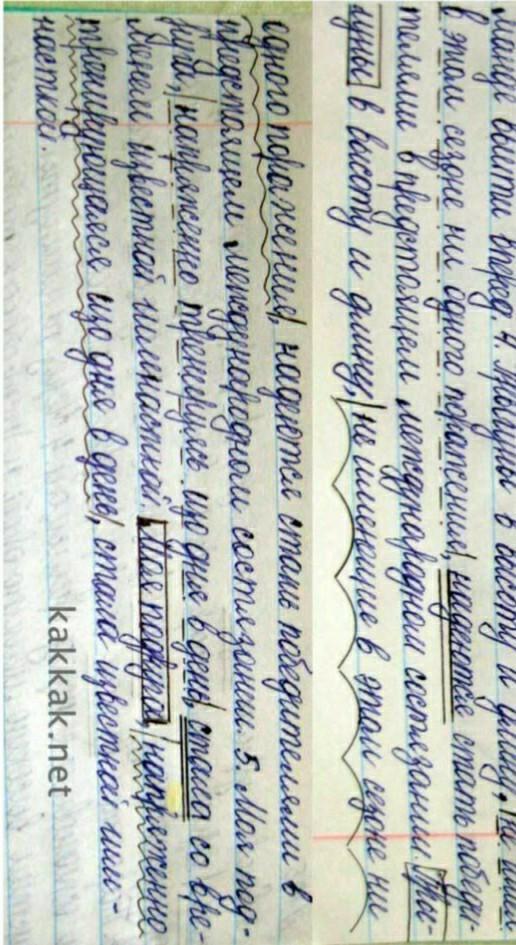 манде выйти вперед. 4 Прыгуны в высоту и длину, не имея
в этом сезоне ни одного поражения, надеются стать победи-
телями в предстоящем международном состязании. Пры-
гуны в высоту и длину, не имеющие в этом сезоне ни
одного поражения, надеются стать победителями в
предстоящем международном состязании. 5. Моя под-
руга, напряженно тренируясь изо дня в день, стала со вре-
менем известной гимнасткой. Моя подруга, напряженно
тренирующаяся изо дня в день, стала известной гим-
насткой.
kakkak.net